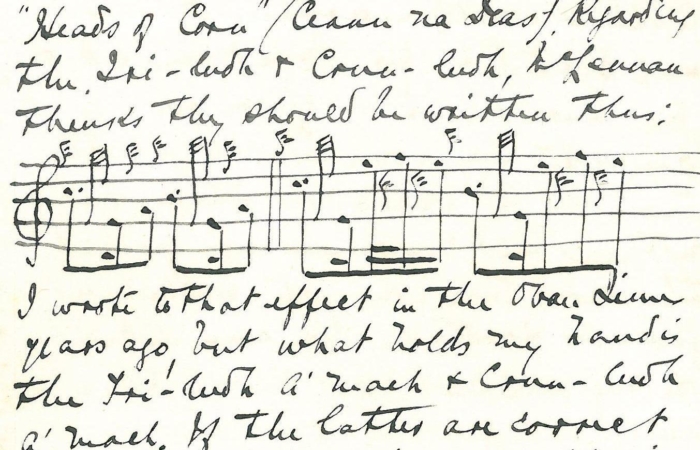 "Heads of Corn" (Ceann na Deas). Regarding
the Tri-ludh & Crun-ludh, McLennan
thinks they should be written thus:
I wrote to that effect in the Oban Times
years ago, but what holds my hand is
the Tri-ludh a' mach & Crun-ludh
a' mach. If the latter are correct